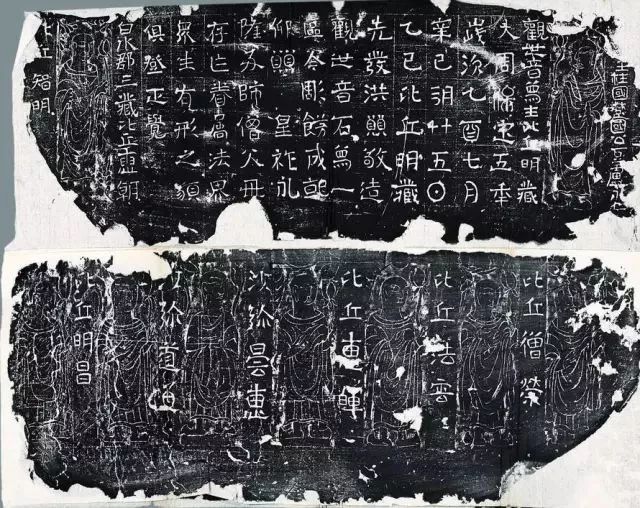 柱國楚國公
觀世音像主比丘明藏
大周保定五年
歲次乙酉七月
辛巳朔廿五日
乙巳比丘明藏
先發洪願敬造
觀世音石像一
區今彫餝成就
仰願 皇祚永
隆師僧父母
存亡眷屬法界
衆生有形之類
俱登正覺
白水郡三藏比丘曇朗
比丘智明
比丘僧榮
比丘法雲
比丘惠暉
沙弥曇惠
沙弥道海
比丘明昌